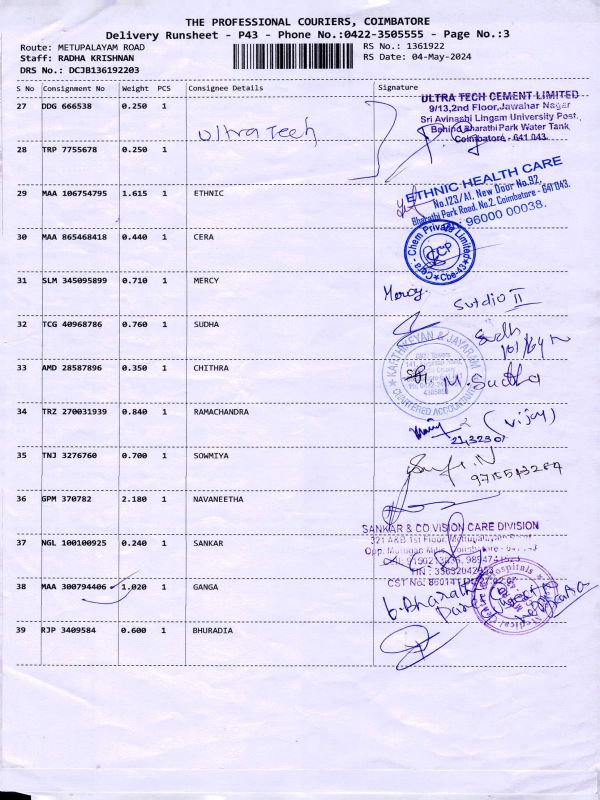 THE PROFESSIONAL COURIERS, COIMBATORE
Delivery Runsheet - P43 - Phone No.:0422-3505555 - Page No.:3
Route: METUPALAYAM ROAD
RS No.: 1361922
Staff: RADHA KRISHNAN
RS Date: 04-May-2024
DRS No.: DCJB136192203
S No Consignment No Weight PCS Consignee Details Signature
27 DDG 666538 0.250 1
Ultra Tech
ULTRA TECH CEMENT LIMITED
9/13,2nd Floor,Jawahar Nagar
Sri Avinashi Lingam University Post,
Behind Bharathi Park Water Tank
Coimbatore - 641 043.
28 TRP 7755678 0.250 1
29 MAA 106754795 1.615 1 ETHNIC
ETHNIC HEALTH CARE
No.123/A1, New Door No.92,
Bharathi Park Road, No.2, Coimbatore - 641 043.
: 96000 00038.
30 MAA 865468418 0.440 1 CERA
Cera - Chem Private Limited
Cbe-43
31 SLM 345095899 0.710 1 MERCY
Mercy.
32 TCG 40968786 0.760 1 SUDHA
KARTHIKEYAN & JAYARAM
CHARTERED ACCOUNTANTS
33 AMD 28587896 0.350 1 CHITHRA
M. Sudha
34 TRZ 270031939 0.840 1 RAMACHANDRA
(Vijay)
35 TNJ 3276760 0.700 1 SOWMIYA
9715543264
36 GPM 370782 2.180 1 NAVANEETHA
37 NGL 100100925 0.240 1 SANKAR
SANKAR & CO VISION CARE DIVISION
321 A&B 1st Floor,
38 MAA 300794406 1.020 1 GANGA
CST No:
b. Bharath
39 RJP 3409584 0.600 1 BHURADIA